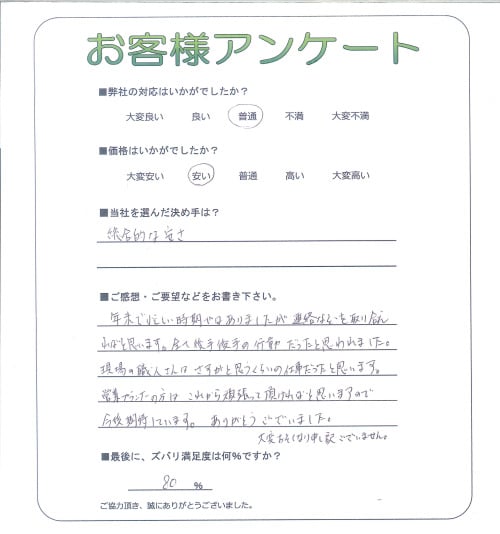 お客様アンケート
■弊社の対応はいかがでしたか？
大変良い 良い 普通 不満 大変不満
■価格はいかがでしたか？
大変安い 安い 普通 高い 大変高い
■当社を選んだ決め手は？
総合的な安さ
■ご感想・ご要望などをお書き下さい。
年末で忙しい時期ではありましたが 連絡などを取り合え
ればと思います。全て後手後手の行動だったと思われました。
現場の職人さんは さすがと思うくらいの仕事だったと思います。
営業 の方は これから頑張って頂ければと思いますので
今後期待しています。 ありがとうございました。
大変おそくなり申し訳ございません。
■最後に、ズバリ満足度は何％ですか？
80 ％
ご協力頂き、誠にありがとうございました。